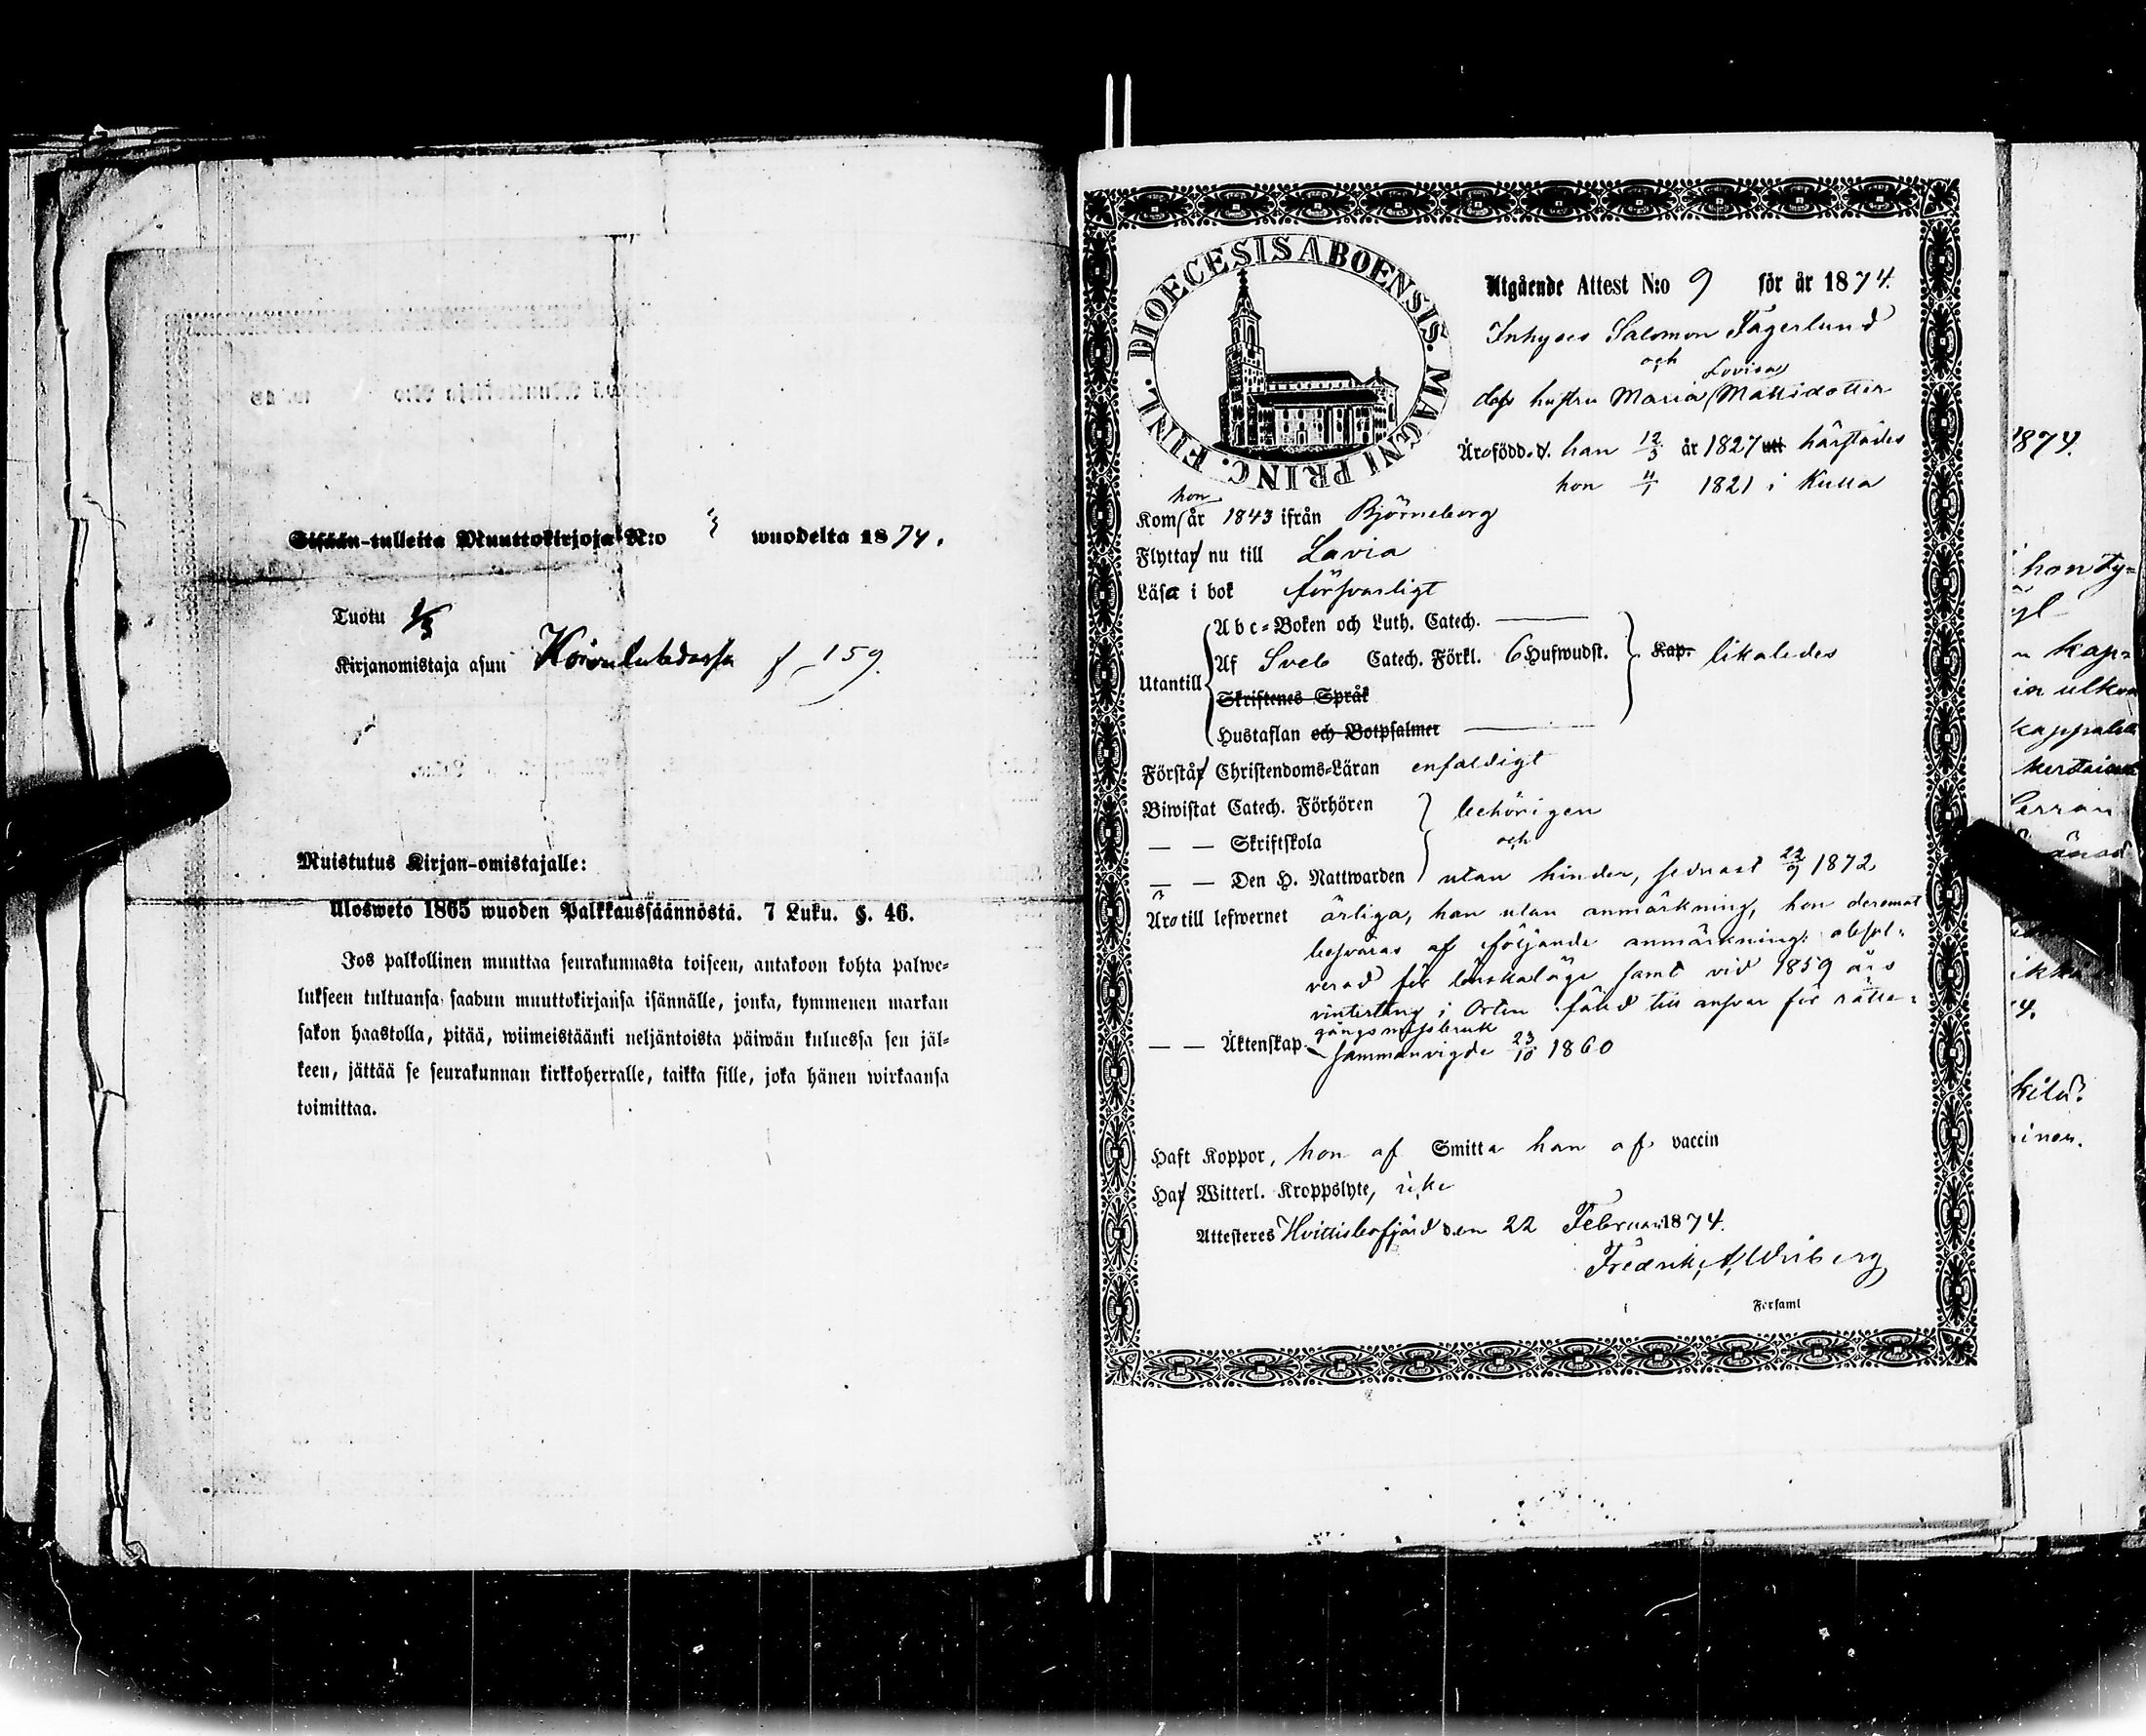 Sisään-tulleita Muuttokirjoja N:o 3 wuodelta 1874.
Tuotu 1/3
Kirjanomistaja asuu f 159.
Muistutus Kirjan-omistajalle:
Ulosweto 1865 wuoden Palkkaussäännöstä. 7 Luku. §. 46.
Jos palkollinen muuttaa seurakunnasta toiseen, antakoon kohta palwe-
lukseen tultuansa saadun muuttokirjansa isännälle, jonka, kymmenen markan
sakon haastolla, pitää, wiimeistäänki neljäntoista päiwän kuluessa sen jäl-
keen, jättää se seurakunnan kirkkoherralle, taikka sille, joka hänen wirkaansa
toimittaa.
DIOECESIS ABOENSIS. MAGNI PRINC. FINL.
Utgående Attest N:o 9 för år 1874.
Inhyses Salomon Fagerlund
och Lovisa
dess hustru Maria Mattsdotter
Äro födde d. han 12/3 år 1827 uti härstädes
hon 4/1 1821 i Kulla
hon
Kom år 1843 ifrån Björneborg
Flyttar nu till Lavia
Läsa i bok försvarligt
Abc-Boken och Luth. Catech.
Utantill Af Sveb Catech. Förkl. 6 Hufwudst. Kap. likaledes
Skriftenes Språk
Hustaflan och Botpsalmer
Förstår Christendoms-Läran enfaldigt
Biwistat Catech. Förhören behörigen
— — Skriftskola och
— — Den H. Nattwarden utan hinder, sednast 22/9 1872
Äro till lefwernet ärliga, han utan anmärkning, hon deremot
besväras af följande anmärkning: absol-
verad för lönskaläge samt vid 1859 års
vinterting i Orten fälld till ansvar för rätte-
gångsmissbruk
— — Äktenskap sammanvigde 23/10 1860
Haft Koppor, hon af Smitta han af vaccin
Har Witterl. Kroppslyte, icke
Attesteres Hvittisbofjärd den 22 Februari 1874.
Fredrik A. Wriberg
i Församl
1874.
kap-